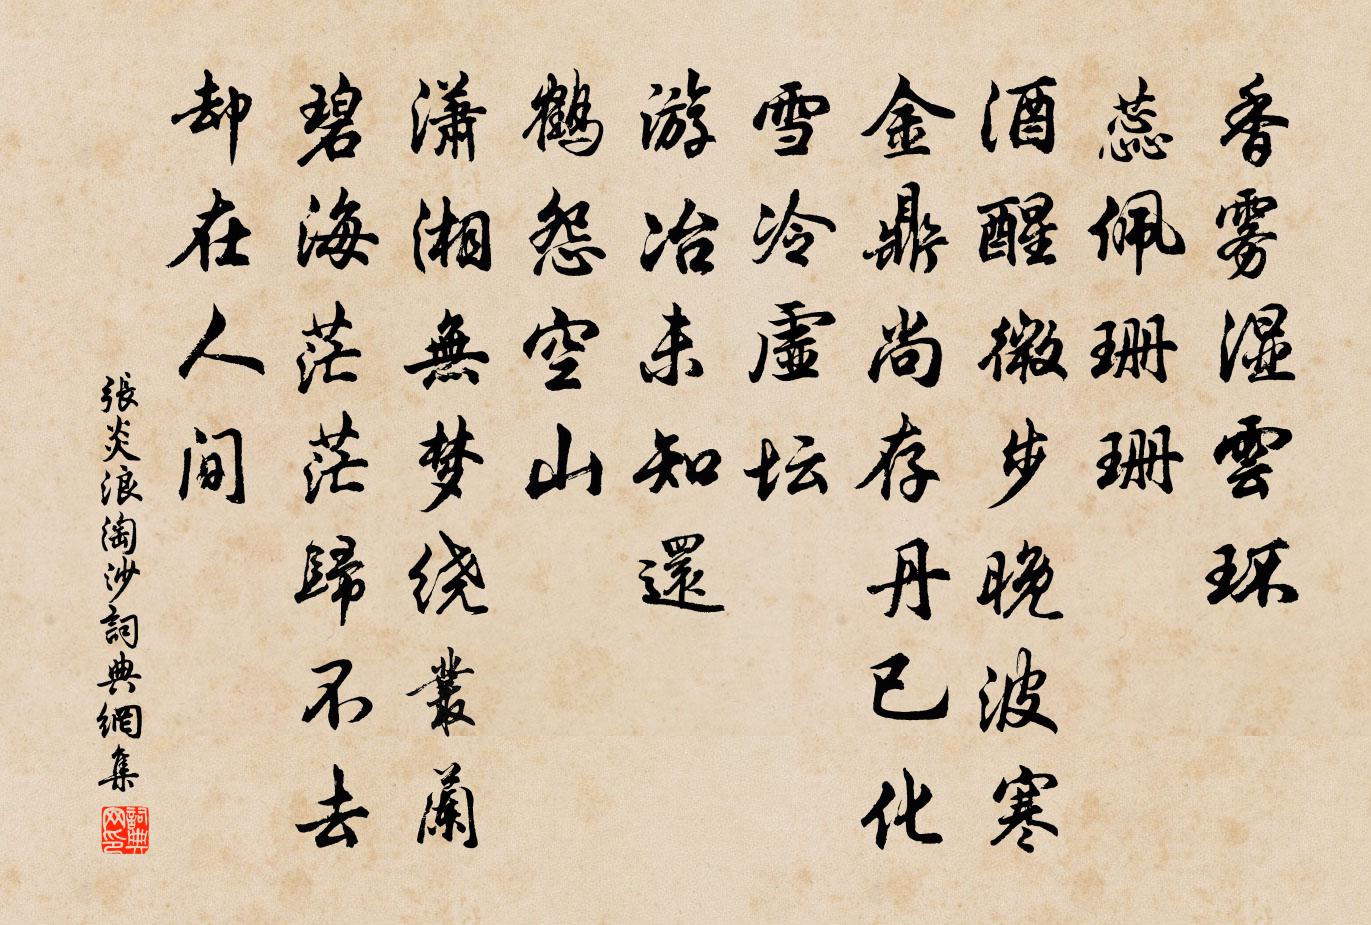 香雾湿雲环
蕊佩珊珊
酒醒微步晚波寒
金鼎尚存丹已化
雪冷虚坛
游冶未知還
鶴怨空山
瀟湘無梦绕叢蘭
碧海茫茫歸不去
却在人间
張炎浪淘沙詞典網集
詞典网印